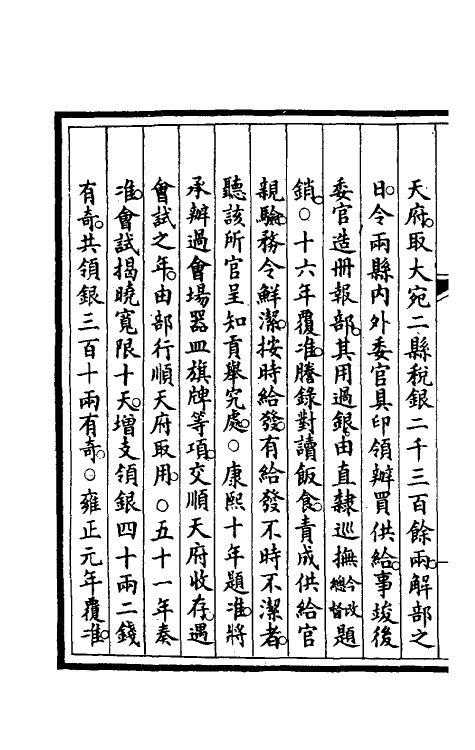 天府。取大宛二縣稅銀二千三百餘兩。解部之
日。令兩縣內外委官具印領辦買供給。事竣後
委官造册報部。其用過銀由直隸巡撫今改總督題
銷。○十六年覆准。謄錄對讀飯食。責成供給官
親驗。務令鮮潔。按時給發。有給發不時不潔者。
聽該所官呈知貢舉究處。○康熙十年題准。將
承辦過會場器皿旗牌等項。交順天府收存。遇
會試之年。由部行順天府取用。○五十一年奏
准。會試揭曉寬限十天。增支領銀四十兩二錢
有奇。共領銀三百十兩有奇。○雍正元年覆准。